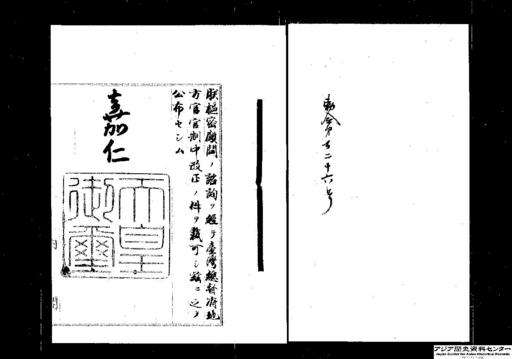 勅令第百二十六号
朕枢密顧問ノ諮詢ヲ経テ台湾総督府地
方官官制中改正ノ件ヲ裁可シ茲ニ之ヲ
公布セシム
嘉仁
天皇
御璽
アジア歴史資料センター
Japan Center for Asian Historical Records